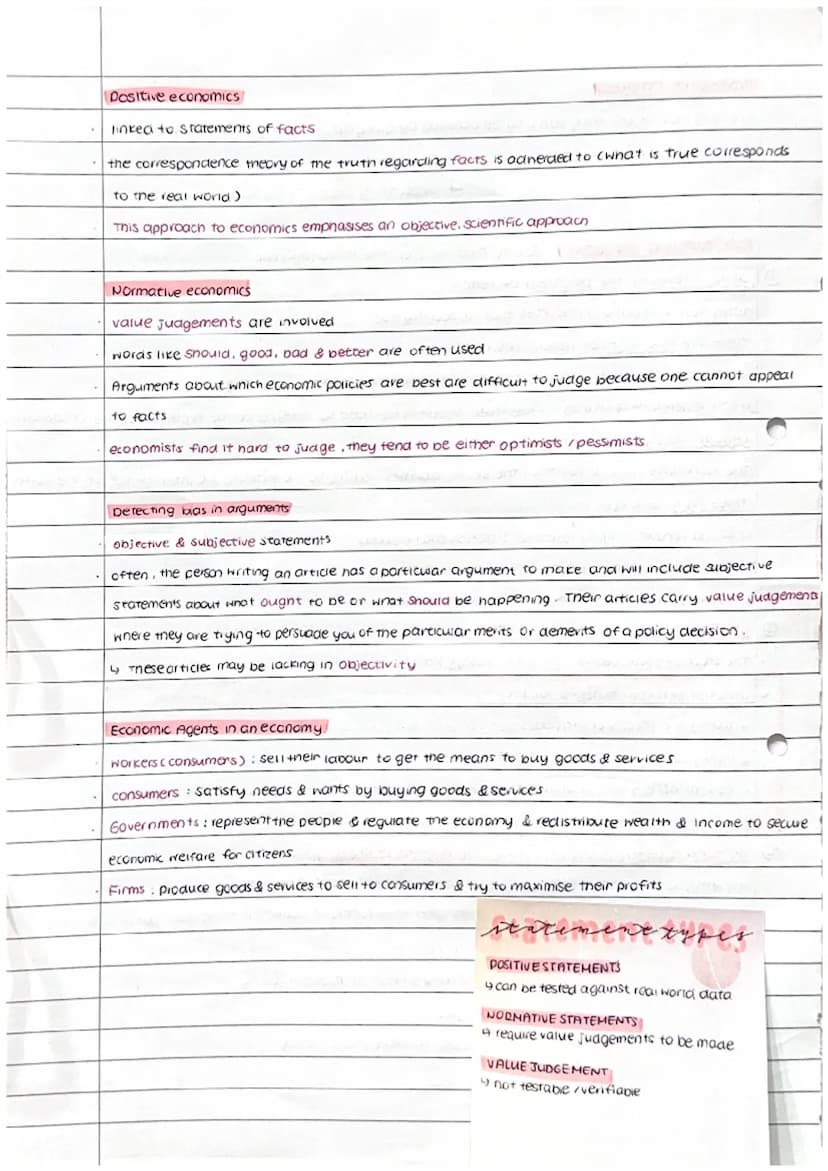 Positive economics
· linked to statements of facts
· the correspondence theory of the truth regarding facts is adhered to (what is true corresponds
to the real world)
This approach to economics emphasises an objective, scientific approach
Normative economics
· value judgements are involved
· words like should, good, bad & better are often used
· Arguments about which economic policies are best are difficult to judge because one cannot appeal
to facts
· economists find it hard to judge, they tend to be either optimists / pessimists.
Detecting bias in arguments
· objective & subjective statements
· often, the person writing an article has a particular argument to make and will include subjective
statements about what ought to be or what should be happening. Their articles carry value judgements
where they are trying to persuade you of the particular merits or demerits of a policy decision.
↳ These articles may be lacking in objectivity
Economic Agents in an economy
· workers (consumers) : sell their labour to get the means to buy goods & services
· consumers : satisfy needs & wants by buying goods & services
· Governments : represent the people & regulate the economy & redistribute wealth & income to secure
economic welfare for citizens
· Firms : produce goods & services to sell to consumers & try to maximise their profits
statement types
POSITIVE STATEMENTS
↳ can be tested against real world data
NORMATIVE STATEMENTS
↳ require value judgements to be made
VALUE JUDGEMENT
↳ not testable / verifiable